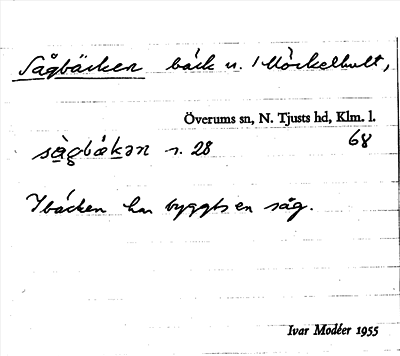 Sågbäcken bäck u. Möckelhult,
Överums sn, N. Tjusts hd, Klm. l.
68
sàgbákən r. 28
I bäcken har byggts en såg.
Ivar Modéer 1955